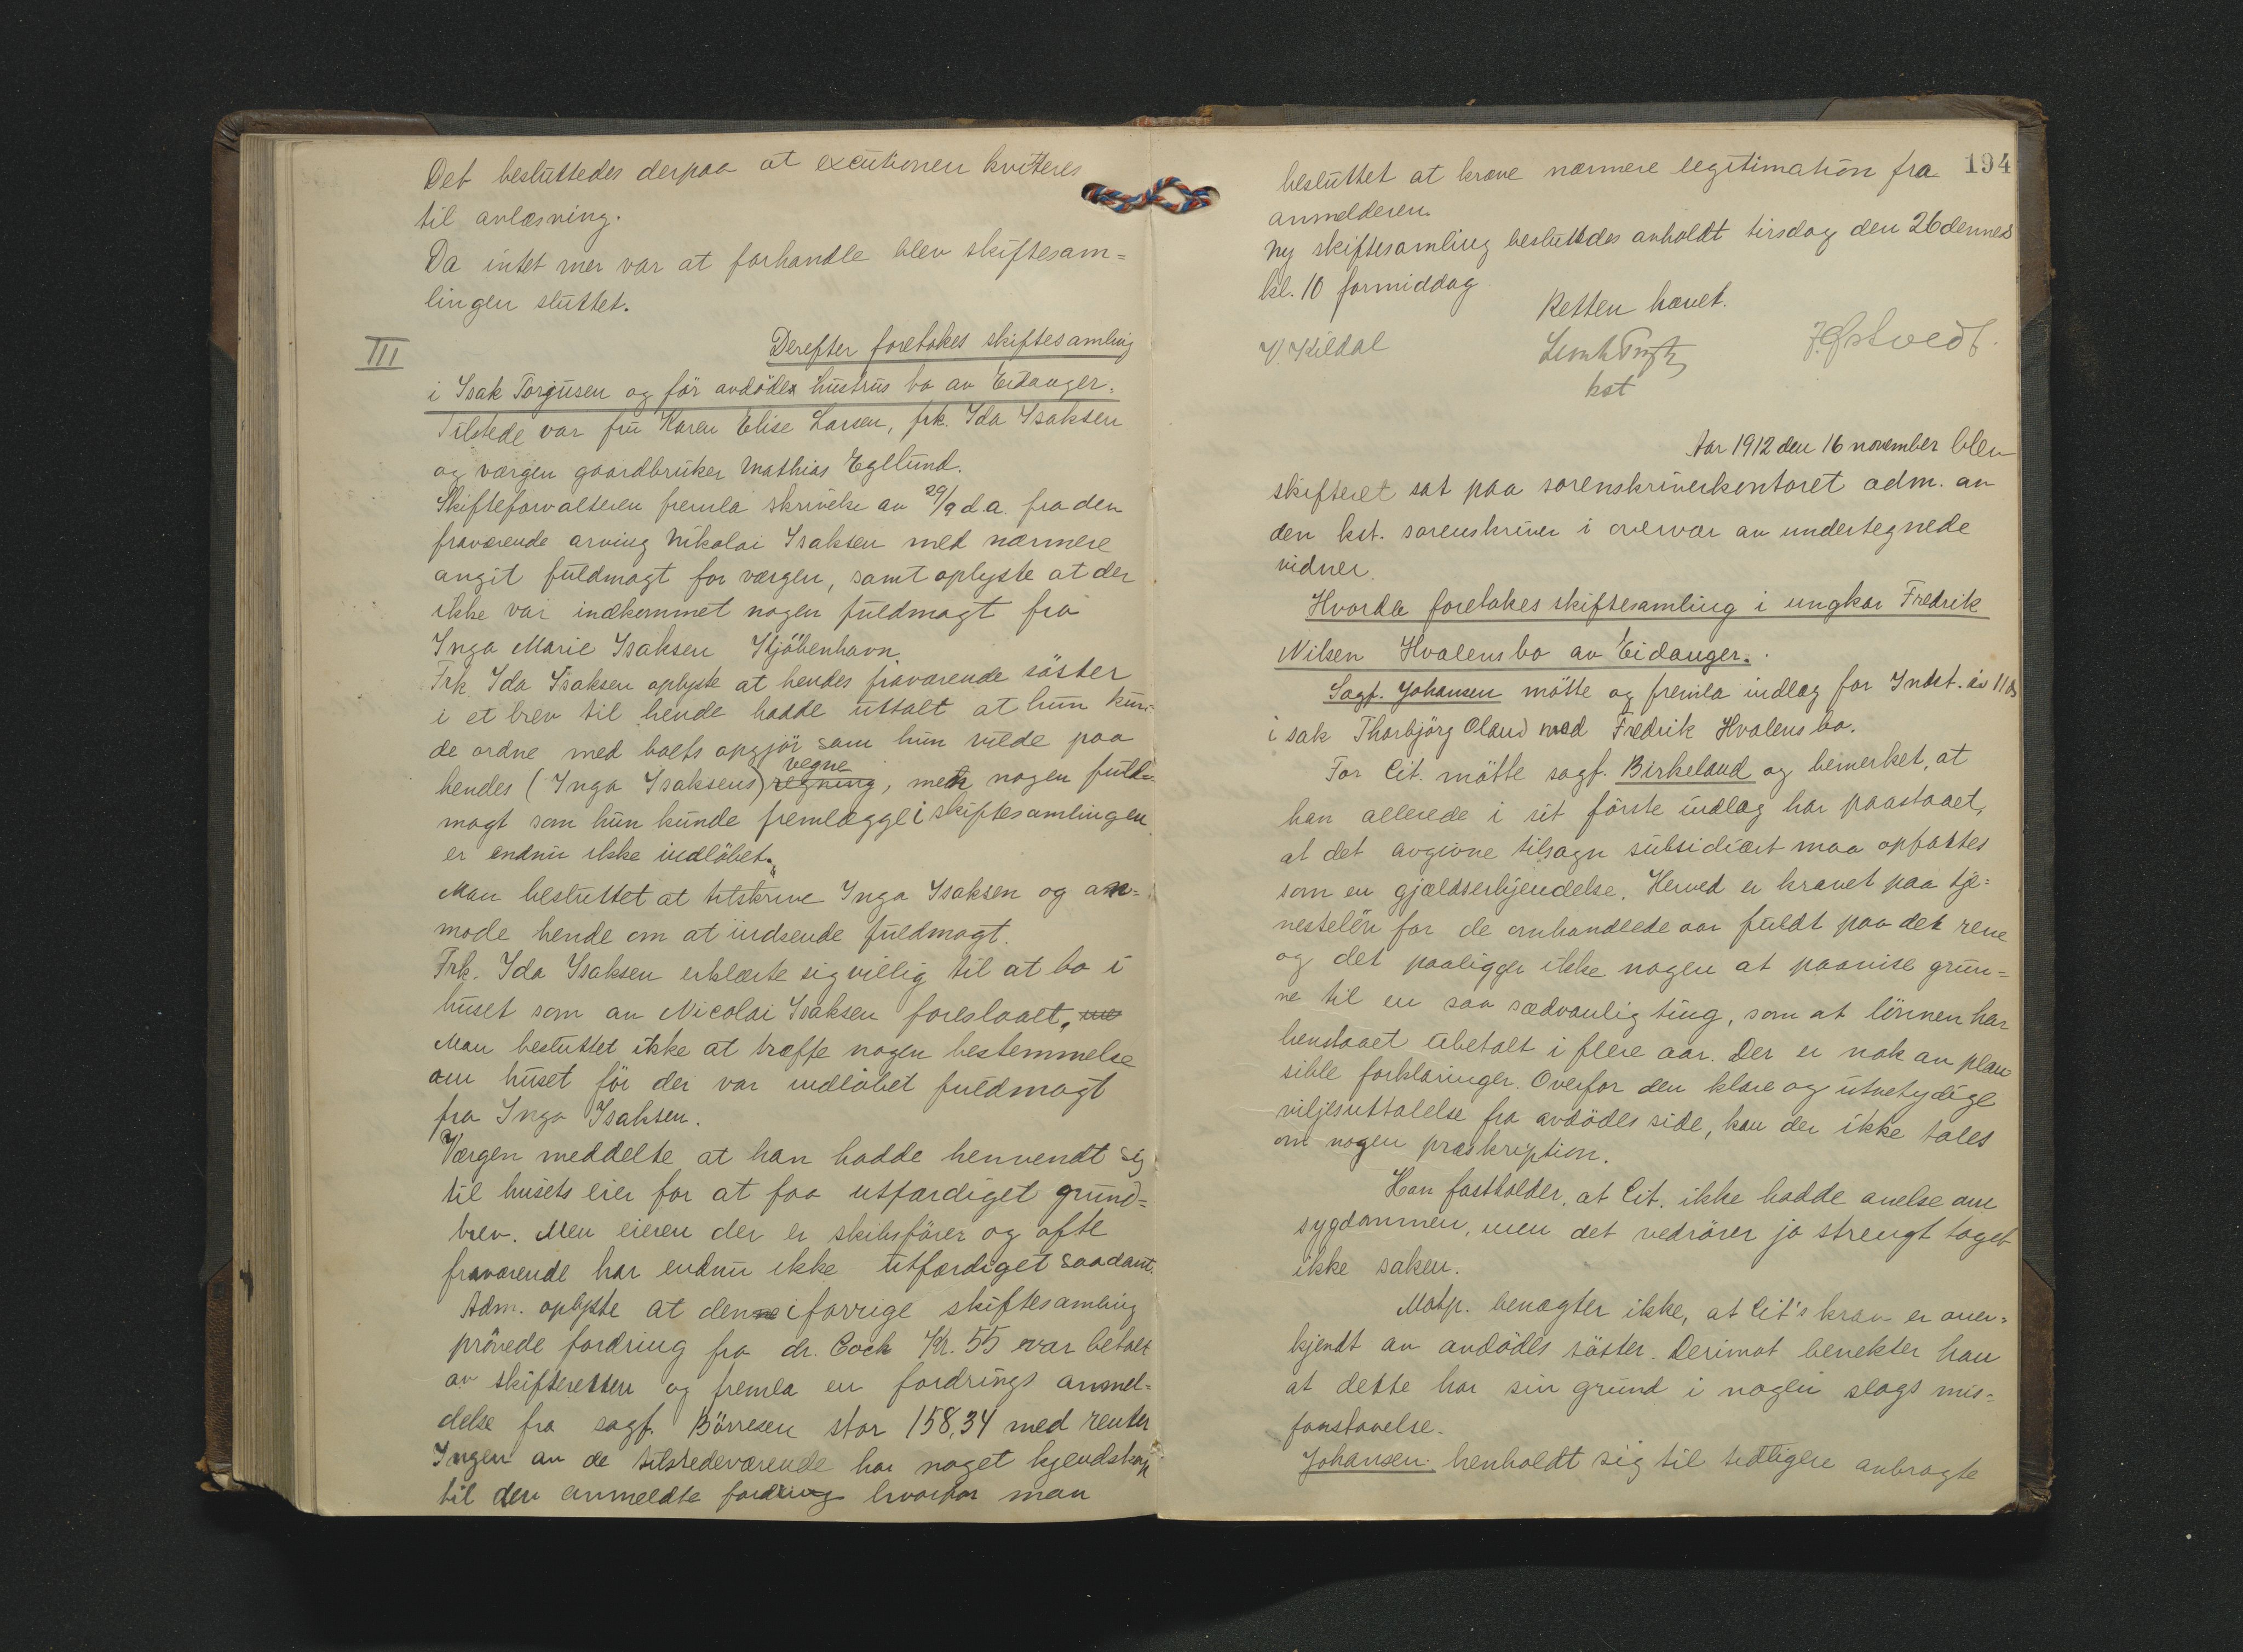 Det besluttedes derpaa at excutionen kvitteres
til avlæsning.
Da intet mer var at forhandle blev skiftesam=
lingen sluttet.
III
Derefter foretokes skiftesamling
i Isak Torgusen og før avdödes hustrus bo av Eidanger.
Tilstede var fru Karen Elise Larsen, frk. Ida Isaksen
og værgen gaardbruker Mathias Eglund.
Skifteforvalteren fremla skrivelse av 29/9 d.a. fra den
fraværende arving Nikolai Isaksen med nærmere
angit fuldmagt for værgen, samt oplyste at der
ikke var indkommet nogen fuldmagt fra
Inga Marie Isaksen Kjöbenhavn.
Frk. Ida Isaksen oplyste at hendes fraværende söster
i et brev til hende hadde uttalt at hun kun-
de ordne med boets opgjör som hun vilde paa
hendes (Inga Isaksens) regning vegne, men nogen fuld=
magt som hun kunde fremlægge i skiftesamlingen
er endnu ikke indlöbet.
Man besluttet at tilskrive Inga Isaksen og an=
mode hende om at indsende fuldmagt.
Frk. Ida Isaksen erklærte sig villig til at bo i
huset som av Nicolai Isaksen foreslaaet.
Man besluttet ikke at træffe nogen bestemmelse
om huset för der var indlöbet fuldmagt
fra Inga Isaksen.
Værgen meddelte at han hadde henvendt sig
til husets eier for at faa utfærdiget grund=
brev. Men eieren der er skibsförer og ofte
fraværende har endnu ikke utfærdiget saadant.
Adm. oplyste at den i forrige skiftesamling
prövede fordring fra dr. Cock Kr. 55 var betalt
av skifteretten og fremla en fordrings anmel=
delse fra sagf. Börresen stor 158,34 med renter
Ingen av de tilstedeværende har noget kjendskap
til den anmeldte fordring hvorfor man
194
besluttet at kræve nærmere legitimation fra
anmelderen.
Ny skiftesamling besluttedes avholdt tirsdag den 26 dennes
kl. 10 formiddag.
Retten hævet.
V. Kildal
J. Østvedt.
kst
Aar 1912 den 16 november blev
skifteret sat paa sorenskriverkontoret adm. av
den kst. sorenskriver i overvær av undertegnede
vidner.
Hvorda foretokes skiftesamling i ungkar Fredrik
Nilsen Hvalens bo av Eidanger.
Sagf. Johansen mötte og fremla indlæg for Indst. av 11 ds
i sak Thorbjörg Oland mod Fredrik Hvalens bo.
For Cit. mötte sagf. Birkeland og bemerket, at
han allerede i sit förste indlæg har paastaaet,
at det avgivne tilsagn subsidiært maa opfattes
som en gjældserkjendelse. Herved er kravet paa tje=
nestelön for de omhandlede aar fuldt paa det rene
og det paaligger ikke nogen at paavise grun=
ne til en saa sædvanlig ting, som at lönnen har
henstaaet ubetalt i flere aar. Der er nok av plau
sible forklaringer. Overfor den klare og utvetydige
viljesuttalelse fra avdödes side, kan der ikke tales
om nogen præskription.
Han fastholder, at Cit. ikke hadde anelse om
sygdommen, men det vedrörer jo strengt taget
ikke saken.
Motp. benægter ikke, at Cit's krav er aner=
kjendt av avdödes söster. Derimot benekter han
at dette har sin grund i nogen slags mis=
forstaaelse.
Johansen henholdt sig til tidligere anbragte